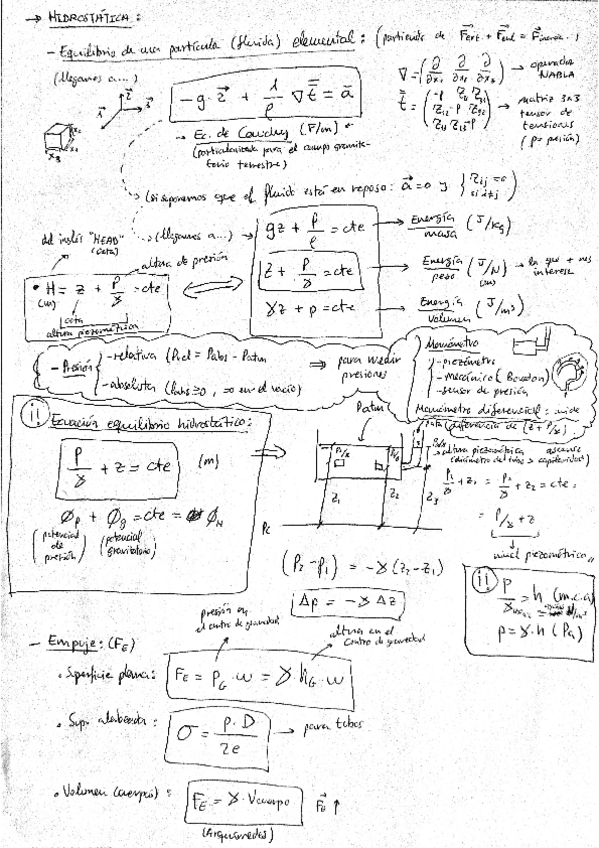 → HIDROSTÁTICA:
- Equilibrio de una partícula (fluida) elemental: (partiendo de F⃗ext. + F⃗
(llegamos a...)
-g·z⃗ + 1/ρ ∇t̿ = a⃗
∇ = (∂/∂x₁ ∂/∂x₂ ∂/∂x₃) → operador NABLA
→ matriz 3x3
tensor de
tensiones
(p = presión)
→ Ec. de Cauchy (F/m)
(particularizada para el campo gravitatorio terrestre)
→ (si suponemos que el fluido está en reposo: a⃗=0 y { τij=0 si i≠j )
del inglés "HEAD"
(cota)
→ (llegamos a...) →
gz + p/ρ = cte → Energía/masa (J/kg)
z + p/γ = cte → Energía/peso (J/N) (m) → la que + nos interesa
γz + p = cte → Energía/Volumen (J/m³)
altura de presión
• H = z + p/γ = cte
(m)
cota
altura piezométrica
- Presión { - relativa (Prel = Pabs - Patm
- absoluta (Pabs ≥ 0, =0 en el vacío)
⇒ para medir presiones
Manómetro
- piezómetro
- mecánico (Bourdon)
- sensor de presión
Manómetro diferencial: mide
diferencia de (z + P/γ)
¡¡ Ecuación equilibrio hidrostático:
P/γ + z = cte (m)
Øp + Øg = cte = ØH
(potencial de presión) (potencial gravitatorio)
Patm
P1/γ
P2/γ
z1 z2 z3
Pc
→ altura piezométrica
P1/γ + z1 = P2/γ + z2 = cte =
= P/γ + z
nivel piezométrico
(P2 - P1) = -γ(z2 - z1)
Δp = -γ Δz
¡¡ P/γ = h (m.c.a)
p = γ·h (Pa)
presión en
el centro de gravedad
altura en el
centro gravedad
- Empuje: (FE)
• Superficie plana: FE = PG·w = γ·hG·w
• Sup. alabeada: σ = p·D/2e → para tubos
• Volumen (cuerpo): FE = γ·Vcuerpo F⃗E ↑
(Arquímedes)